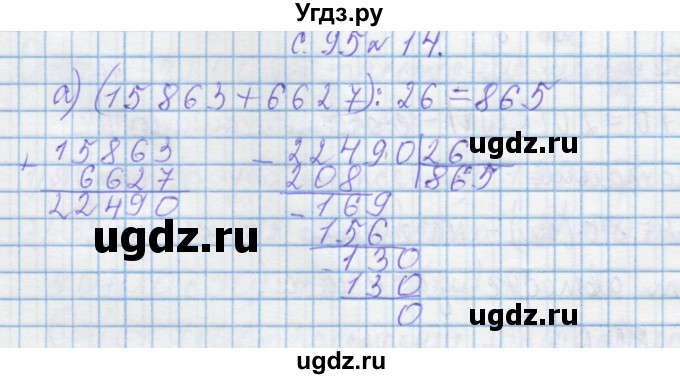 Угдз.ру
с. 95 № 14.
а) (15863+6627):26=865
+ 15863
6627
22490
- 22490 26
208 865
- 169
156
- 130
130
0
ugdz.ru
ugdz.ru
ugdz.ru